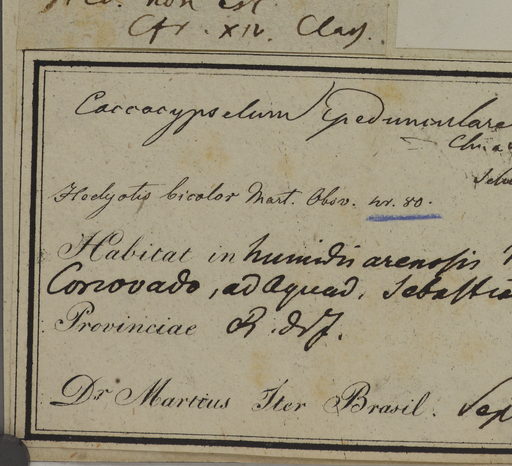 non est
Cfr. XIV. Clas.
Coccocypselum pedunculare
Cham
Schl
Hedyotis bicolor Mart. Obsv. nr. 80.
Habitat in humidis arenosis
Corcovado, ad Aquad. Sebastia
Provinciae R. d. J.
Dr. Martius Iter Brasil. Sep